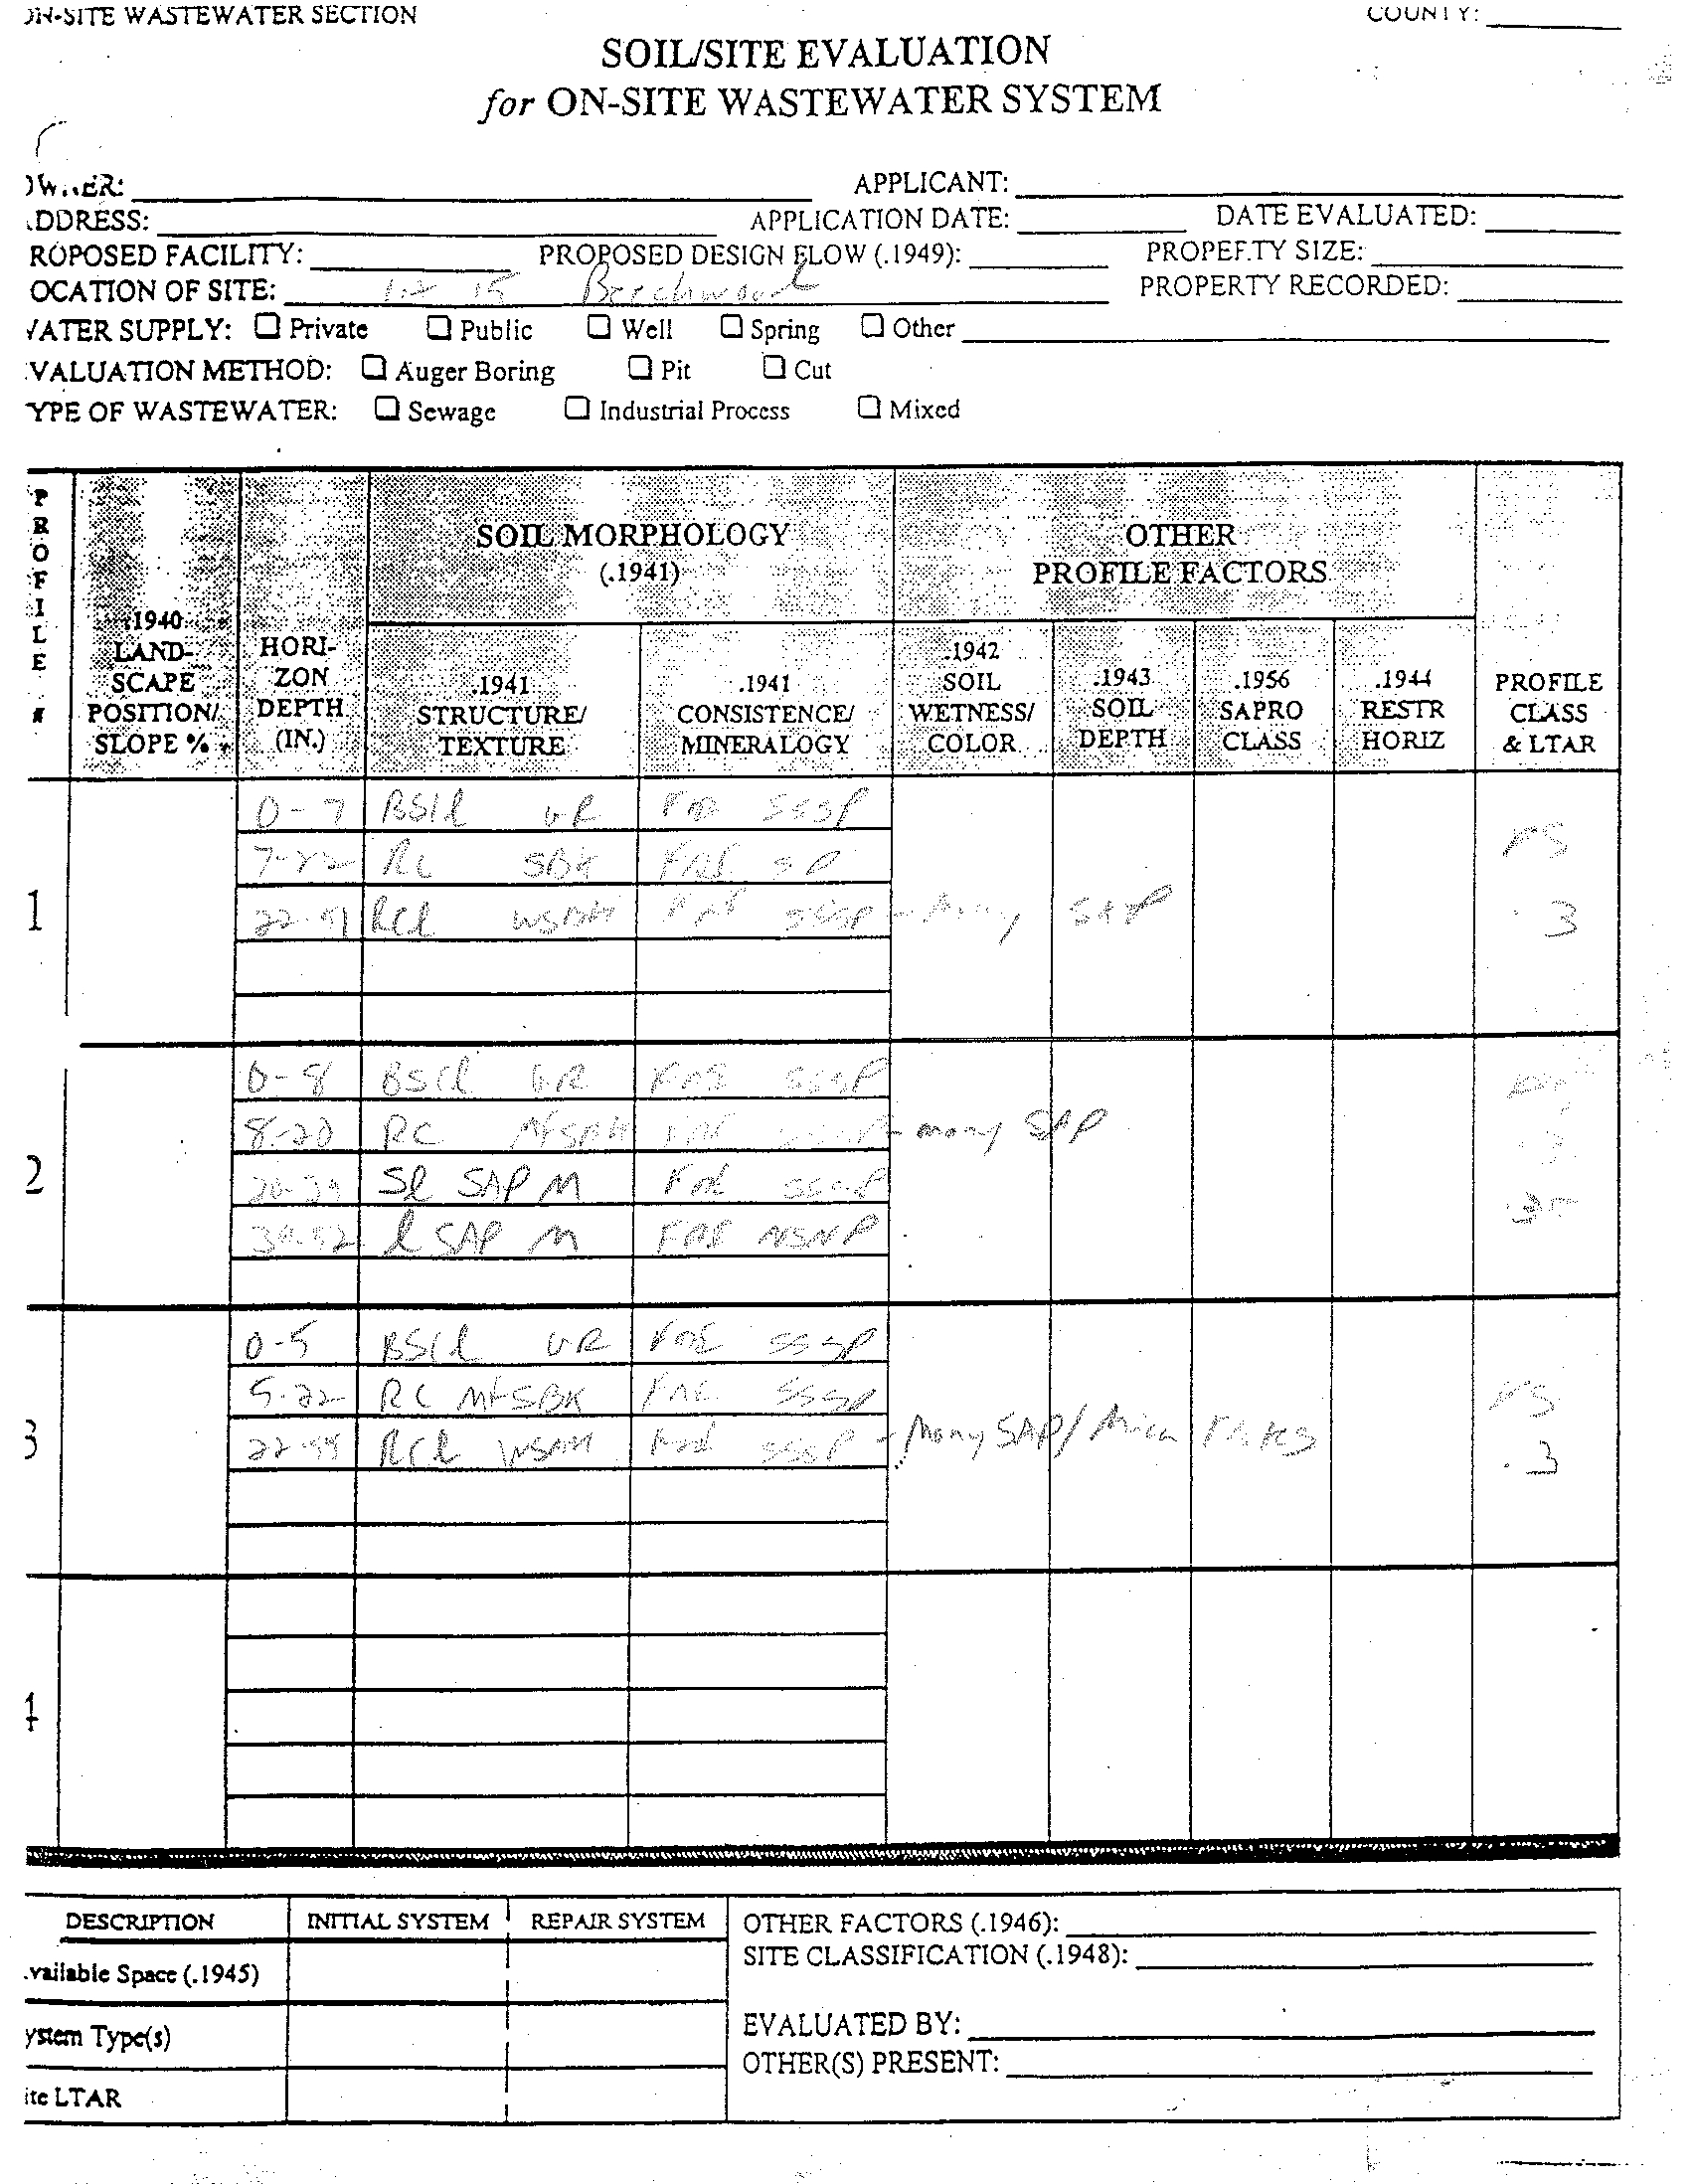 ON-SITE WASTEWATER SECTION COUNTY:
SOIL/SITE EVALUATION
for ON-SITE WASTEWATER SYSTEM
OWNER: APPLICANT:
ADDRESS: APPLICATION DATE: DATE EVALUATED:
ROPOSED FACILITY: PROPOSED DESIGN FLOW (.1949): PROPERTY SIZE:
OCATION OF SITE: Lot 15 Beechwood PROPERTY RECORDED:
WATER SUPPLY: Private Public Well Spring Other
VALUATION METHOD: Auger Boring Pit Cut
YPE OF WASTEWATER: Sewage Industrial Process Mixed
PROFILE #
.1940 LAND-SCAPE POSITION/ SLOPE %
HORI-ZON DEPTH (IN.)
SOIL MORPHOLOGY
(.1941)
.1941 STRUCTURE/ TEXTURE
.1941 CONSISTENCE/ MINERALOGY
OTHER
PROFILE FACTORS
.1942 SOIL WETNESS/ COLOR
.1943 SOIL DEPTH
.1956 SAPRO CLASS
.1944 RESTR HORIZ
PROFILE CLASS & LTAR
0-7 BSCL GR SSSP
7-22 RC SBK SP PS
1 RCL SSSP - Many SAP .3
0-8 BSCL GR SSSP
8-20 RC - many SAP
2 SL SAP M
L SAP M NSNP
0-5 BSCL GR SSSP
5-22 RC SBK SSSP PS
3 RCL SSSP - Many SAP/ Mica Flakes .3
4
DESCRIPTION INITIAL SYSTEM REPAIR SYSTEM OTHER FACTORS (.1946):
SITE CLASSIFICATION (.1948):
vailable Space (.1945)
ystem Type(s) EVALUATED BY:
OTHER(S) PRESENT:
ite LTAR